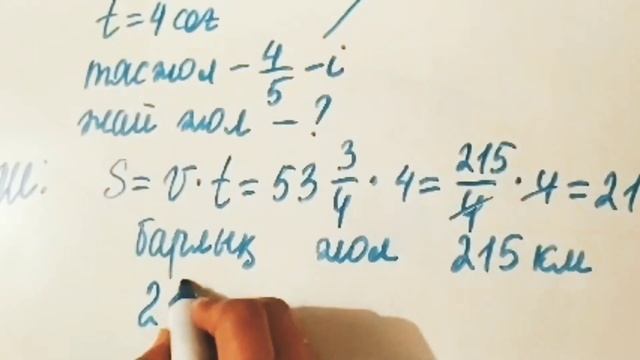 t = 4 сағ
тасжол – 4/5 - і
жай жол – ?
Ш: S = v · t = 53 3/4 · 4 = 215/4 · 4 = 21
барлық жол 215 км
2